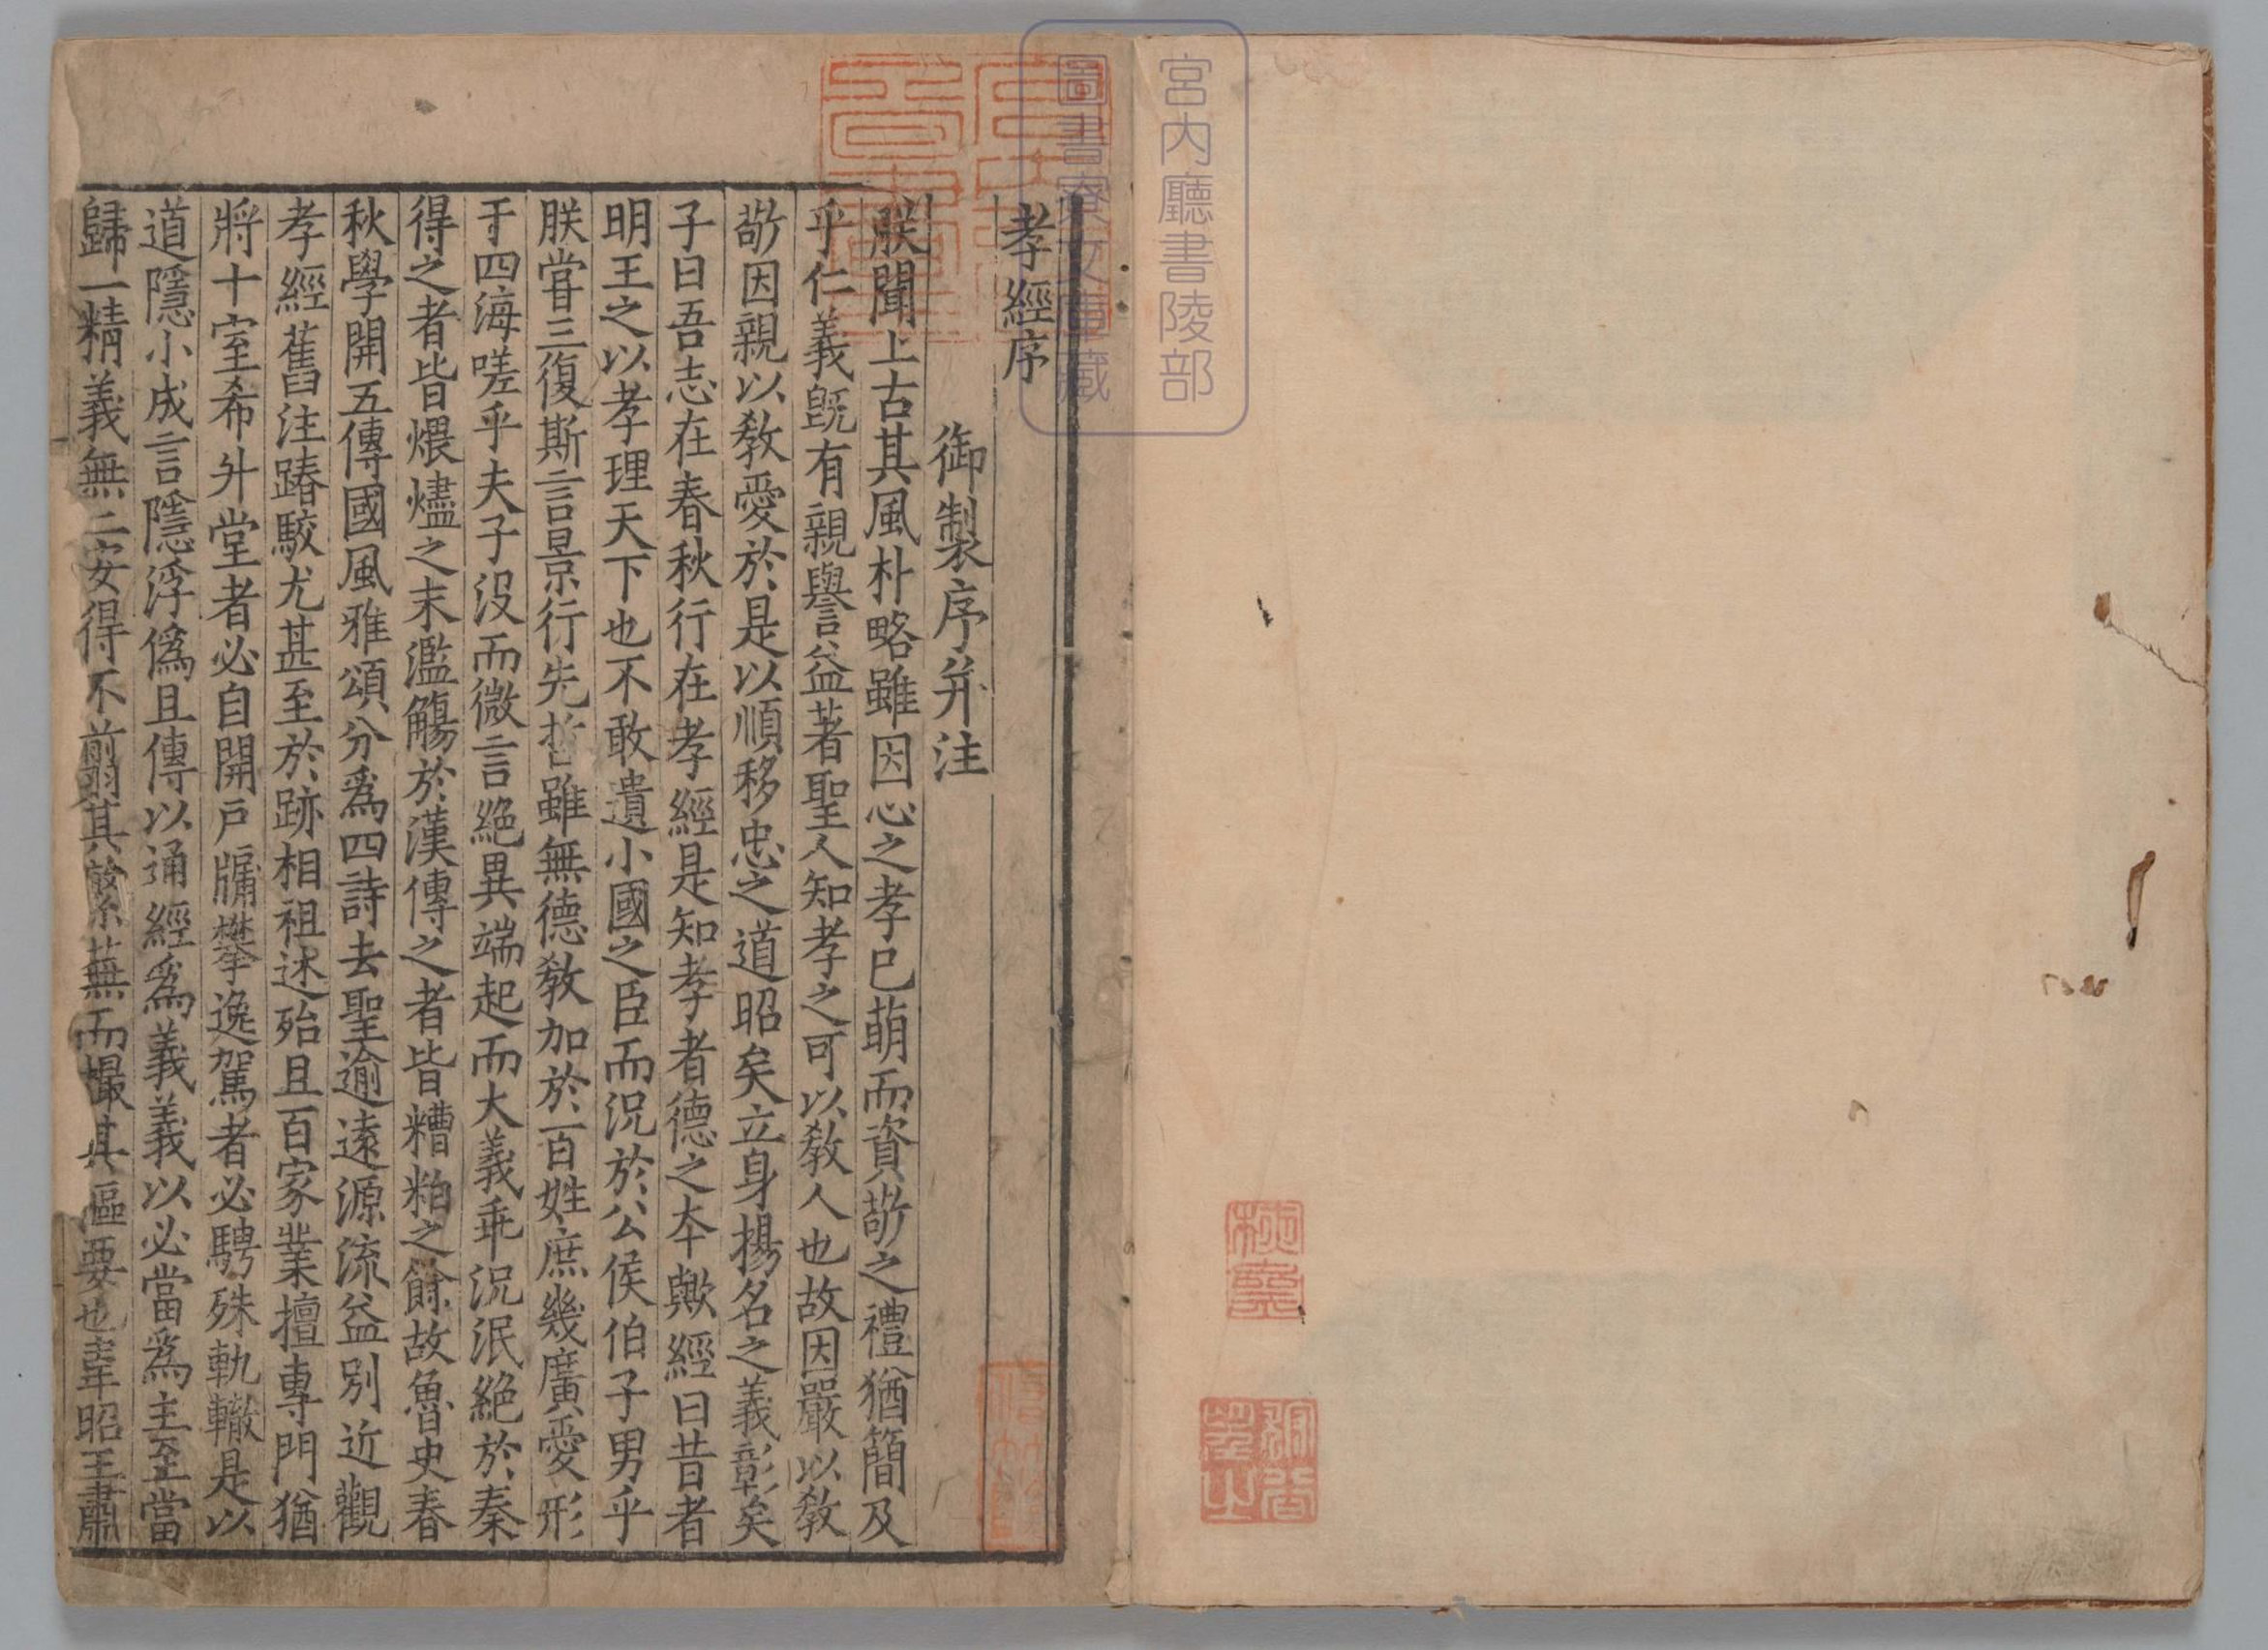 宮内廳書陵部
圖書寮文庫藏
孝經序
御製序并注
朕聞上古其風朴略雖因心之孝已萌而資敬之禮猶簡及
乎仁義既有親譽益著聖人知孝之可以教人也故因嚴以教
敬因親以教愛於是以順移忠之道昭矣立身揚名之義彰矣
子曰吾志在春秋行在孝經是知孝者德之本歟經曰昔者
明王之以孝理天下也不敢遺小國之臣而況於公侯伯子男乎
朕嘗三復斯言景行先哲雖無德教加於百姓庶幾廣愛形
于四海嗟乎夫子沒而微言絕異端起而大義乖況泯絕於秦
得之者皆煨燼之末濫觴於漢傳之者皆糟粕之餘故魯史春
秋學開五傳國風雅頌分爲四詩去聖逾遠源流益別近觀
孝經舊注踳駮尤甚至於跡相祖述殆且百家業擅專門猶
將十室希升堂者必自開戶牖攀逸駕者必騁殊軌轍是以
道隱小成言隱浮僞且傳以通經爲義義以必當爲主至當
歸一精義無二安得不翦其繁蕪而撮其樞要也韋昭王肅